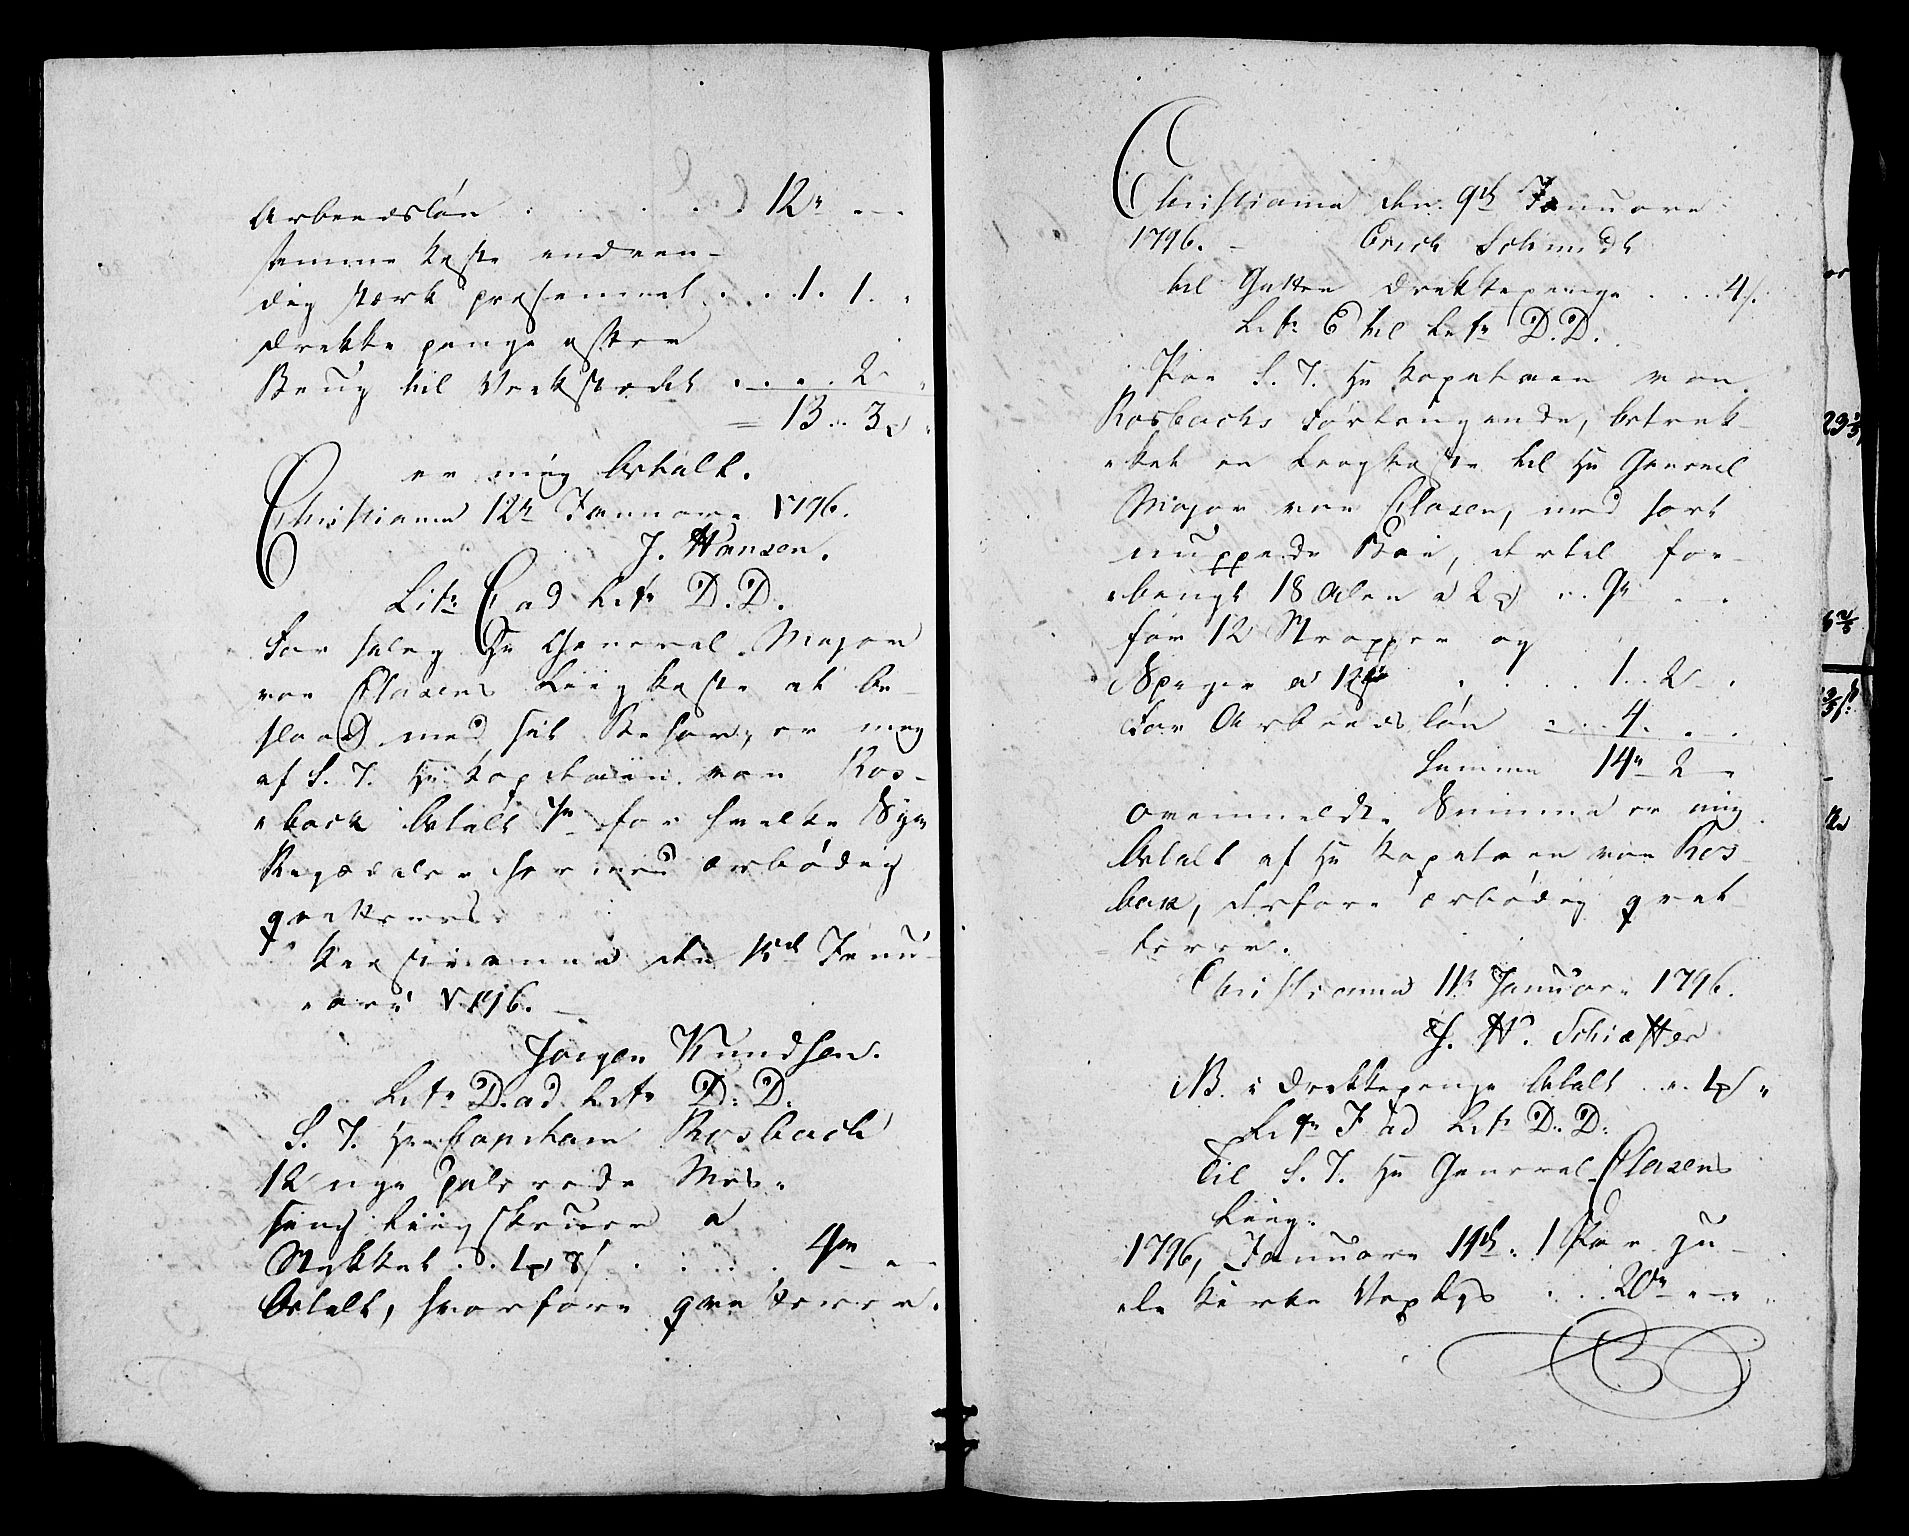 Arbeedsløn . . . . 12" - -
samme Kiste indven-
dig stærk presenneret . . . 1. 1. "
Drikke penge efter
Brug til Verkstædet . . . . 2 "
= 13 .. 3 "
er mig betalt.
Christiania 12te Januari 1796.
J. Hansen.
Litr C ad Litr D.D.
For salig Hr General Major
von Clasens Liigkiste at be-
slaaed med sit Behør, er mig
af S. T. Hr Kapitain von Ros-
back betalt 7 for hvilke Syv
Rigsdaler hermed ærbødig
qvitteres.
Kristiania den Januu-
arii 1796.
Jørgen Knudsen.
Litr D. ad Litr D. D.
S. T. Hr Capitain Rosbach
12 nye Polerede Mes-
sing Liigskruer a
Stykket . . 8 . . . . 4 - -
betalt, hvorfore qvitterer.
Christiania den 9de Januari
1796. - Erich Schmidt
til Gutten Drikkepenge . . . 4
Litr E til Litr D.D.
Paa S. T. Hr Kapitain von
Rosbachs Forlangende, betrek-
ket en Liigkiste til Hr General
Major von Clasen, med sort
nuppede Boi, dertil for-
brugt 18 Alen a 2 .. 9 - -
for 12 Stropper og
Spiger a 12 . . . 1. 2 -
For Arbeedsløn . . . 4. - -
Summa 14 - 2 -
ovenmeldte Summa er mig
betalt af Hr Kapitain von Ros-
bak, derfore ærbødig qvit-
terer.
Christiania 11te Januari 1796.
J. W. Schiøtter
NB. i Drikkepenge betalt ..
Litr F ad Litr D. D.
Til S. T. Hr General Clasens
Liig.
1796, Januari 14de. 1 Par gu-
ele Kirke Voxlys . . . 20 - -